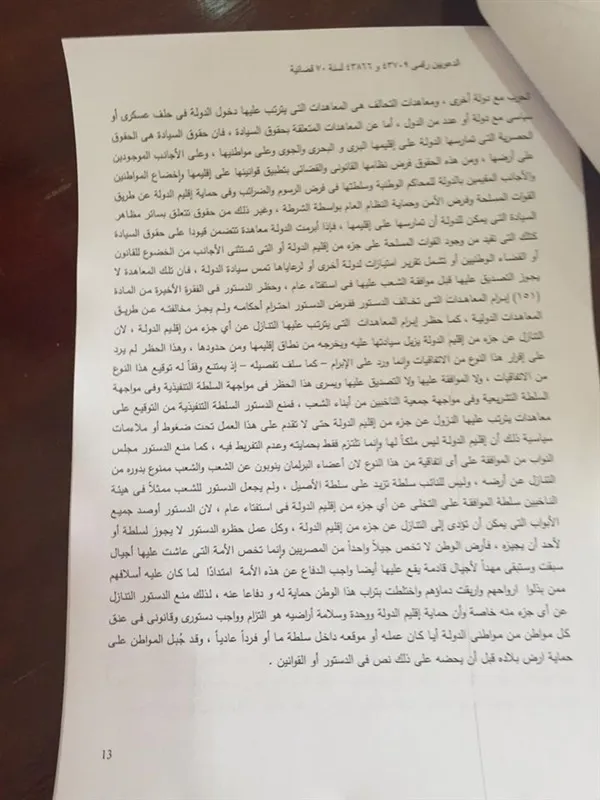 الدعويين رقمى ٤٣٧٠٩ و ٤٣٨٦٦ لسنة ٧٠ قضائية
الحرب مع دولة أخرى ، ومعاهدات التحالف هى المعاهدات التى يترتب عليها دخول الدولة فى حلف عسكرى أو
سياسى مع دولة أو عدد من الدول ، أما عن المعاهدات المتعلقة بحقوق السيادة ، فان حقوق السيادة هى الحقوق
الحصرية التى تمارسها الدولة على إقليمها البرى و البحرى والجوى وعلى مواطنيها ، وعلى الأجانب الموجودين
على أرضها ، ومن هذه الحقوق فرض نظامها القانونى والقضائى بتطبيق قوانينها على إقليمها وإخضاع المواطنين
والأجانب المقيمين بالدولة للمحاكم الوطنية وسلطتها فى فرض الرسوم والضرائب وفى حماية إقليم الدولة عن طريق
القوات المسلحة وفرض الأمن وحماية النظام العام بواسطة الشرطة ، وغير ذلك من حقوق تتعلق بسائر مظاهر
السيادة التي يمكن للدولة أن تمارسها على إقليمها ، فإذا أبرمت الدولة معاهدة تتضمن قيودا على حقوق السيادة
كتلك التى تقيد من وجود القوات المسلحة على جزء من إقليم الدولة أو التى تستثنى الأجانب من الخضوع للقانون
أو القضاء الوطنيين أو تشمل تقرير امتيازات لدولة أخرى أو لرعاياها تمس سيادة الدولة ، فان تلك المعاهدة لا
يجوز التصديق عليها قبل موافقة الشعب عليها فى استفتاء عام ، وحظر الدستور فى الفقرة الأخيرة من المادة
(١٥١) إبرام المعاهدات التى تخالف الدستور ففرض الدستور احترام أحكامه ولم يجز مخالفته عن طريق
المعاهدات الدولية ، كما حظر إبرام المعاهدات التى يترتب عليها التنازل عن أي جزء من إقليم الدولة ، لان
التنازل عن جزء من إقليم الدولة يزيل سيادتها عليه ويخرجه من نطاق إقليمها ومن حدودها ، وهذا الحظر لم يرد
على إقرار هذا النوع من الاتفاقيات وإنما ورد على الإبرام – كما سلف تفصيله – إذ يمتنع وفقاً له توقيع هذا النوع
من الاتفاقيات ، ولا الموافقة عليها ولا التصديق عليها ويسرى هذا الحظر فى مواجهة السلطة التنفيذية وفى مواجهة
السلطة التشريعية وفى مواجهة جمعية الناخبين من أبناء الشعب ، فمنع الدستور السلطة التنفيذية من التوقيع على
معاهدات يترتب عليها النزول عن جزء من إقليم الدولة حتى لا تقدم على هذا العمل تحت ضغوط أو ملاءمات
سياسية ذلك أن إقليم الدولة ليس ملكاً لها وإنما تلتزم فقط بحمايته وعدم التفريط فيه ، كما منع الدستور مجلس
النواب من الموافقة على أى اتفاقية من هذا النوع لان أعضاء البرلمان ينوبون عن الشعب والشعب ممنوع بدوره من
التنازل عن أرضه ، وليس للنائب سلطة تزيد على سلطة الأصيل ، ولم يجعل الدستور للشعب ممثلاً فى هيئة
الناخبين سلطة الموافقة على التخلى عن أي جزء من إقليم الدولة فى استفتاء عام ، لان الدستور أوصد جميع
الأبواب التى يمكن أن تؤدى إلى التنازل عن جزء من إقليم الدولة ، وكل عمل حظره الدستور لا يجوز لسلطة أو
لأحد أن يجيزه ، فأرض الوطن لا تخص جيلاً واحداً من المصريين وإنما تخص الأمة التى عاشت عليها أجيال
سبقت وستبقى مهداً لأجيال قادمة يقع عليها أيضا واجب الدفاع عن هذه الأمة امتدادًا لما كان عليه أسلافهم
ممن بذلوا ارواحهم واريقت دماؤهم واختلطت بتراب هذا الوطن حماية له و دفاعا عنه ، لذلك منع الدستور التنازل
عن أي جزء منه خاصة وأن حماية إقليم الدولة ووحدة وسلامة أراضيه هو التزام وواجب دستورى وقانونى فى عنق
كل مواطن من مواطنى الدولة أيا كان عمله أو موقعه داخل سلطة ما أو فرداً عادياً ، وقد جُبل المواطن على
حماية ارض بلاده قبل أن يحضه على ذلك نص فى الدستور أو القوانين .
13